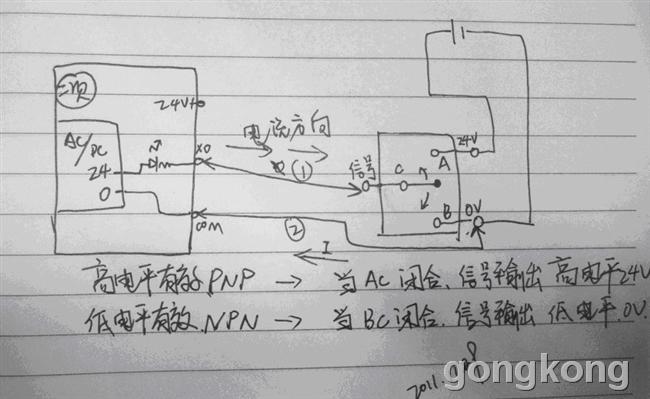 三 24V+
AC/DC
24
0
X0
COM
电流方向
①
②
I
信号
C
A
B
24V
0V
高电平有效.PNP → 当AC闭合.信号输出高电平24V
低电平有效.NPN → 当BC闭合.信号输出低电平.0V.
2011.
gongkong